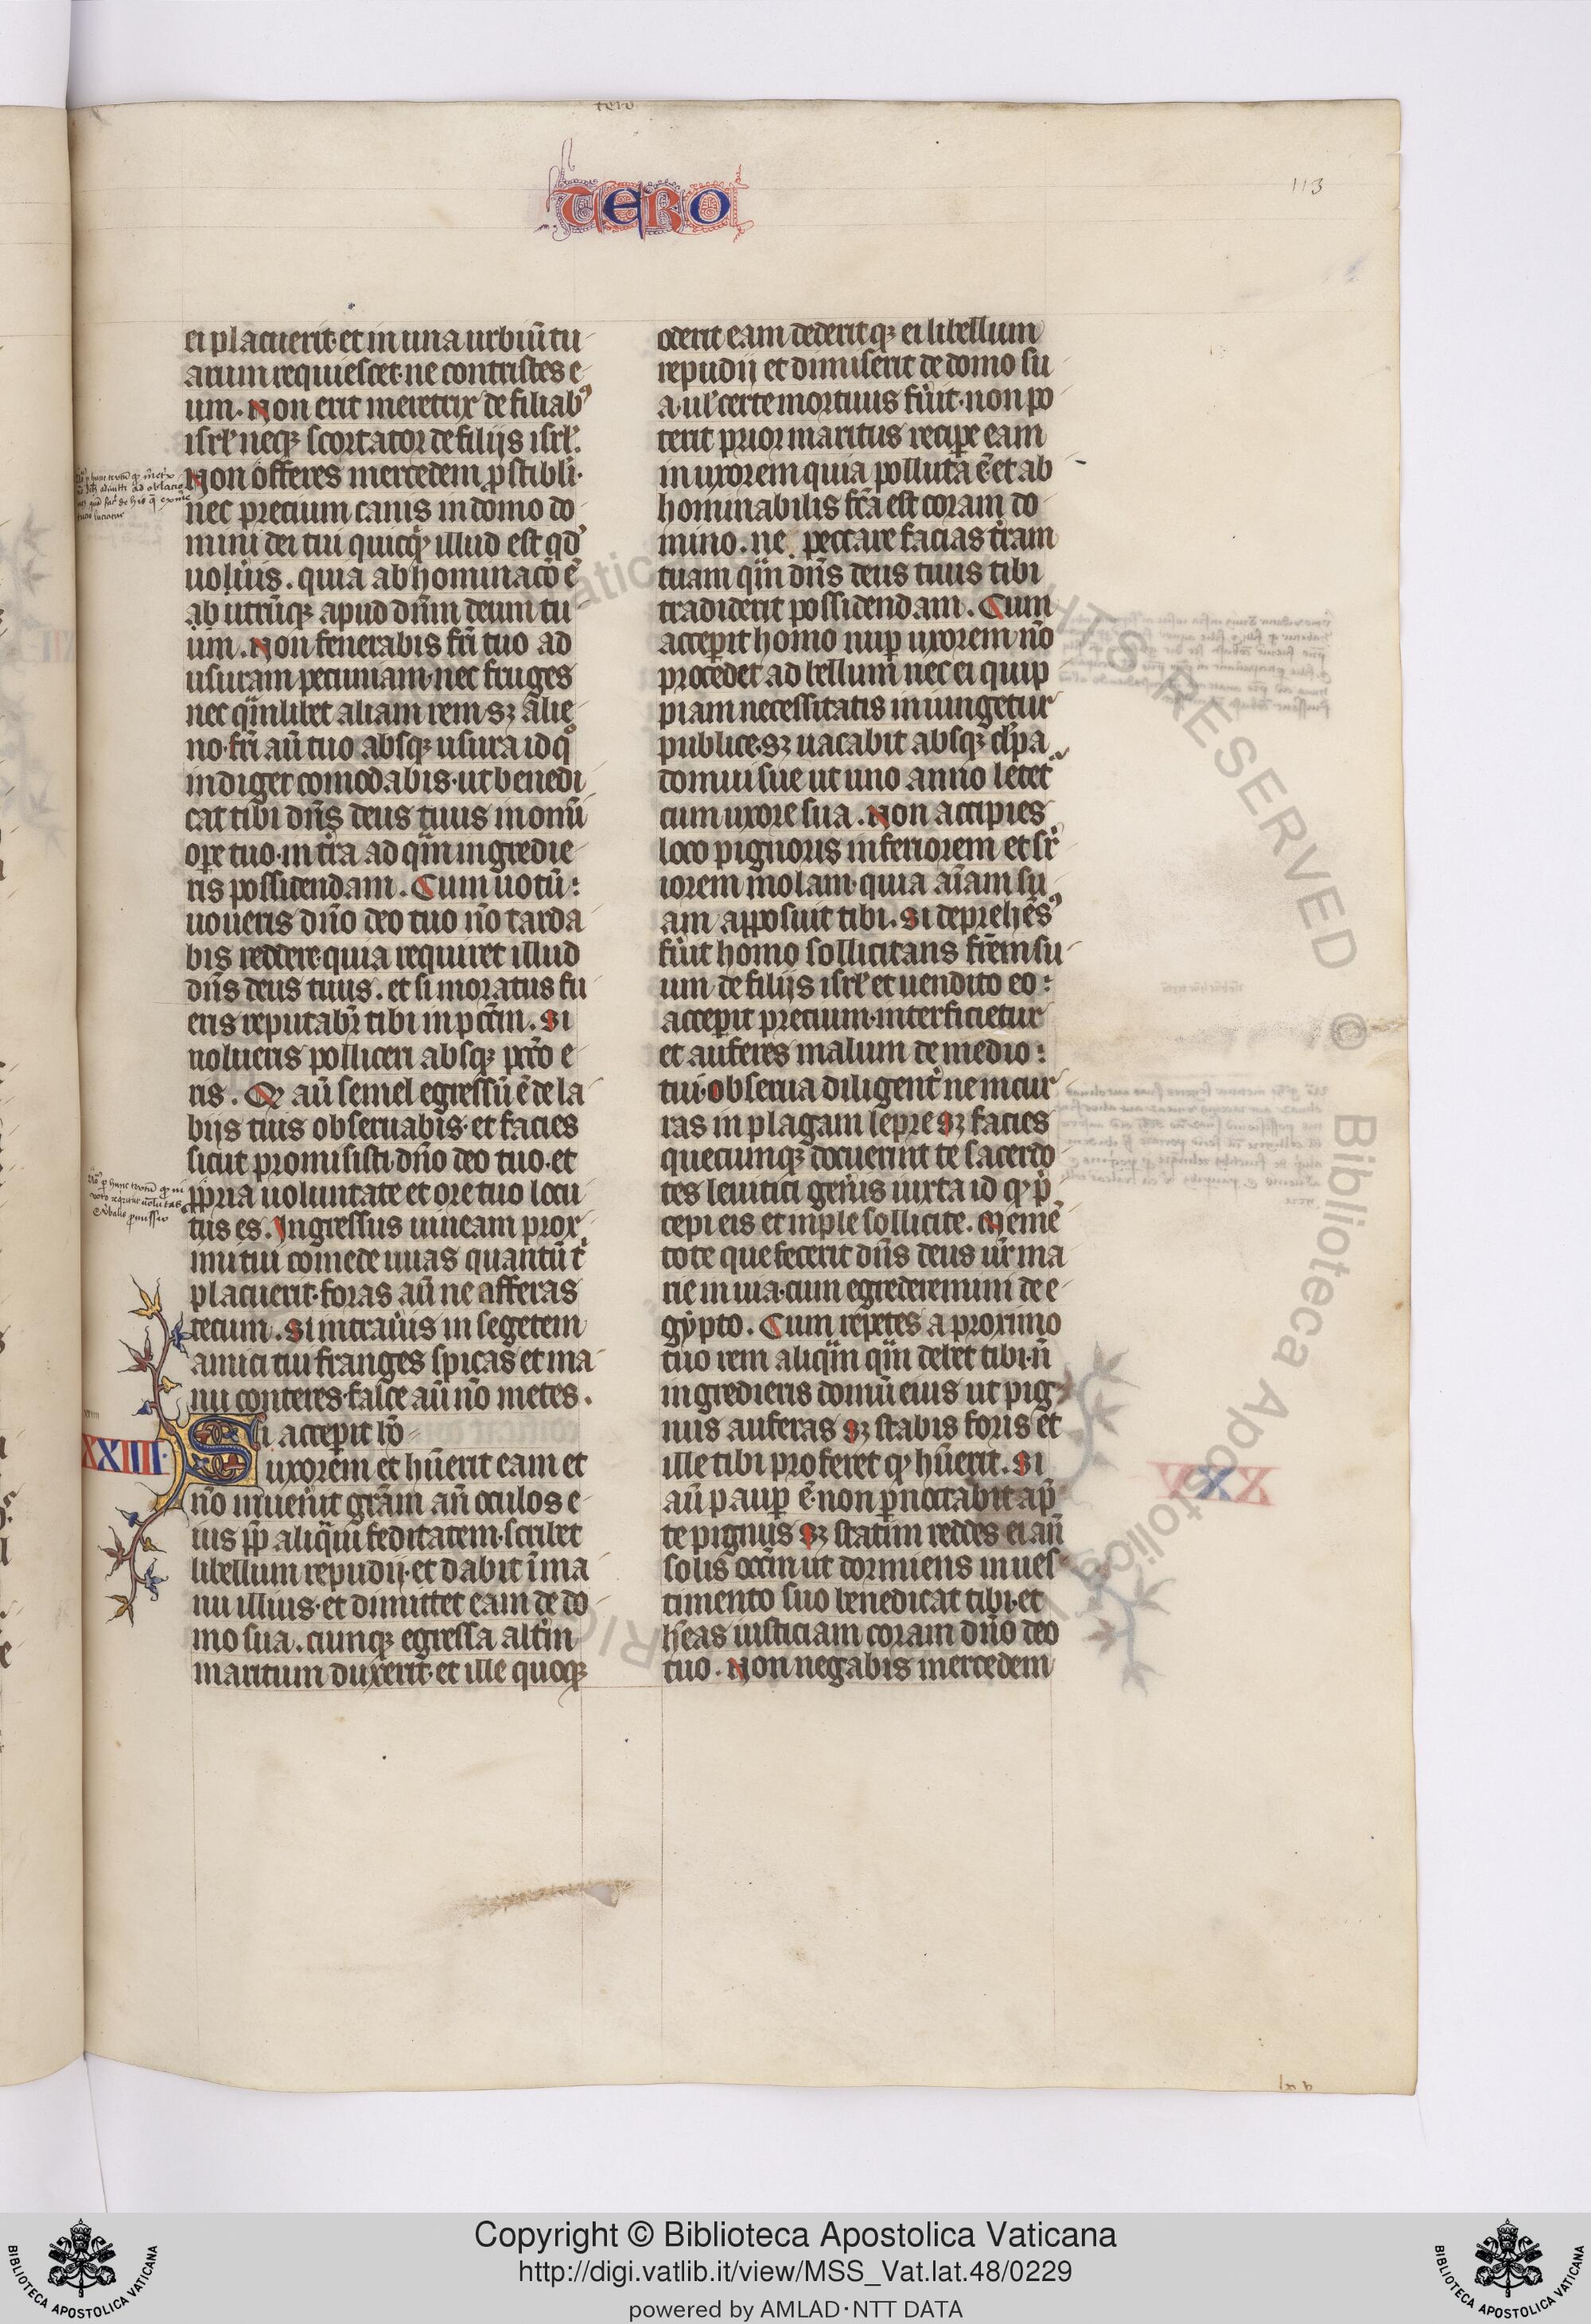 tero
TERO
113
ei placuerit· et in una urbiū tu
arum requiescet· ne contristes e
um. Non erit meretrix de filiabꝰ
isrl̄ neqꝫ scortator de filijs isrl̄.
Non offeres mercedem ꝓstibli·
nec precium canis in domo do
mini dei tui quicqͥꝫ illud est qd̓
uoūis. quia abhominacō ē
ab utrūqꝫ apud dn̄m deum tu
um. Non fenerabis fr̄i tuo ad
usuram pecuniam· nec fruges
nec qͣmlibet aliam rem· sꝫ alie
no· fr̄i aū tuo absqꝫ usura id qͦ
indiget comodabis· ut benedi
cat tibi dn̄s deus tuus in om̄i
oꝑe tuo· in t̄ra ad qͣm ingredie
ris possidendam. Cum uotū:
uoueris dn̄o deo tuo nō tarda
bis reddere· quia requiret illud
dn̄s deus tuus. et si moratus fu
eris reputabr̄ tibi in pccm̄. Si
nolueris polliceri absqꝫ pccō e
ris. Qꝫ aū semel egressū ē de la
bijs tuis obseruabis· et facies
sicut promisisti dn̄o deo tuo· et
ꝓpria uoluntate et ore tuo locu
tus es. Ingressus uineam prox
imi tui comede uuas quantū t̄
placuerit· foras aū ne afferas
tecum. Si intrauis in segetem
amici tui franges spicas et ma
nu conteres· falce aū nō metes.
XXIIII·
Si acceꝑit hō
uxorem et hūerit eam et
nō inuenit grām an̄ oculos e
ius ꝓp̄ aliqͣm feditatem· scribet
libellum repudij· et dabit ī ma
nu illius· et dimittet eam de do
mo sua. cumqꝫ egressa altm̄
maritum duxerit· et ille quoqꝫ
oderit eam dederitqꝫ ei libellum
repudij et dimiserit de domo su
a· ul̓ certe mortuus fūit· non po
terit prior maritus reciꝑe eam
in uxorem quia polluta ē· et ab
hominabilis fcā est coram do
mino. ne peccare facias t̄ram
tuam qͣm dn̄s deus tuus tibi
tradiderit possidendam. Cum
acceꝑit homo nuꝑ uxorem nō
procedet ad bellum nec ei quip
piam necessitatis iniungetur
publice· sꝫ uacabit absqꝫ cl̓pa
domui sue ut uno anno letet̄
cum uxore sua. Non accipies
loco pignoris inferiorem et sꝰ
iorem molam· quia aīam su
am apposuit tibi. Si deprehēsꝰ
fūit homo sollicitans fr̄em su
um de filijs isrl̄ et uendito eo:
acceꝑit precium· interficietur
et auferes malum de medio:
tui· Obserua diligent̄ ne incur
ras in plagam lepre sꝫ facies
quecumqꝫ docuerint te sacerdo
tes leuitici gen̄is iuxta id qꝫ p̄
cepi eis et imple sollicite. Memē
tote que fecerit dn̄s deus ur̄ ma
rie in uia· cum egrederemini de e
gẏpto. Cum repetes a proximo
tuo rem aliqͣm qͣm debet tibi· n̄
ingredieris domū eius ut pig
nus auferas sꝫ stabis foris et
ille tibi proferet qꝫ hūerit. Si
aū pauꝑ ē· non ꝑnoctabit ap̄
te pignus sꝫ statim reddes ei an̄
solis occm̄ ut dormiens in ues
timento suo benedicat tibi· et
h̄eas iusticiam coram dn̄o deo
tuo. Non negabis mercedem
RIGHTS RESERVED © Biblioteca Apostolica Vaticana
Copyright © Biblioteca Apostolica Vaticana
http://digi.vatlib.it/view/MSS_Vat.lat.48/0229
powered by AMLAD·NTT DATA
BIBLIOTECA APOSTOLICA VATICANA
BIBLIOTECA APOSTOLICA VATICANA